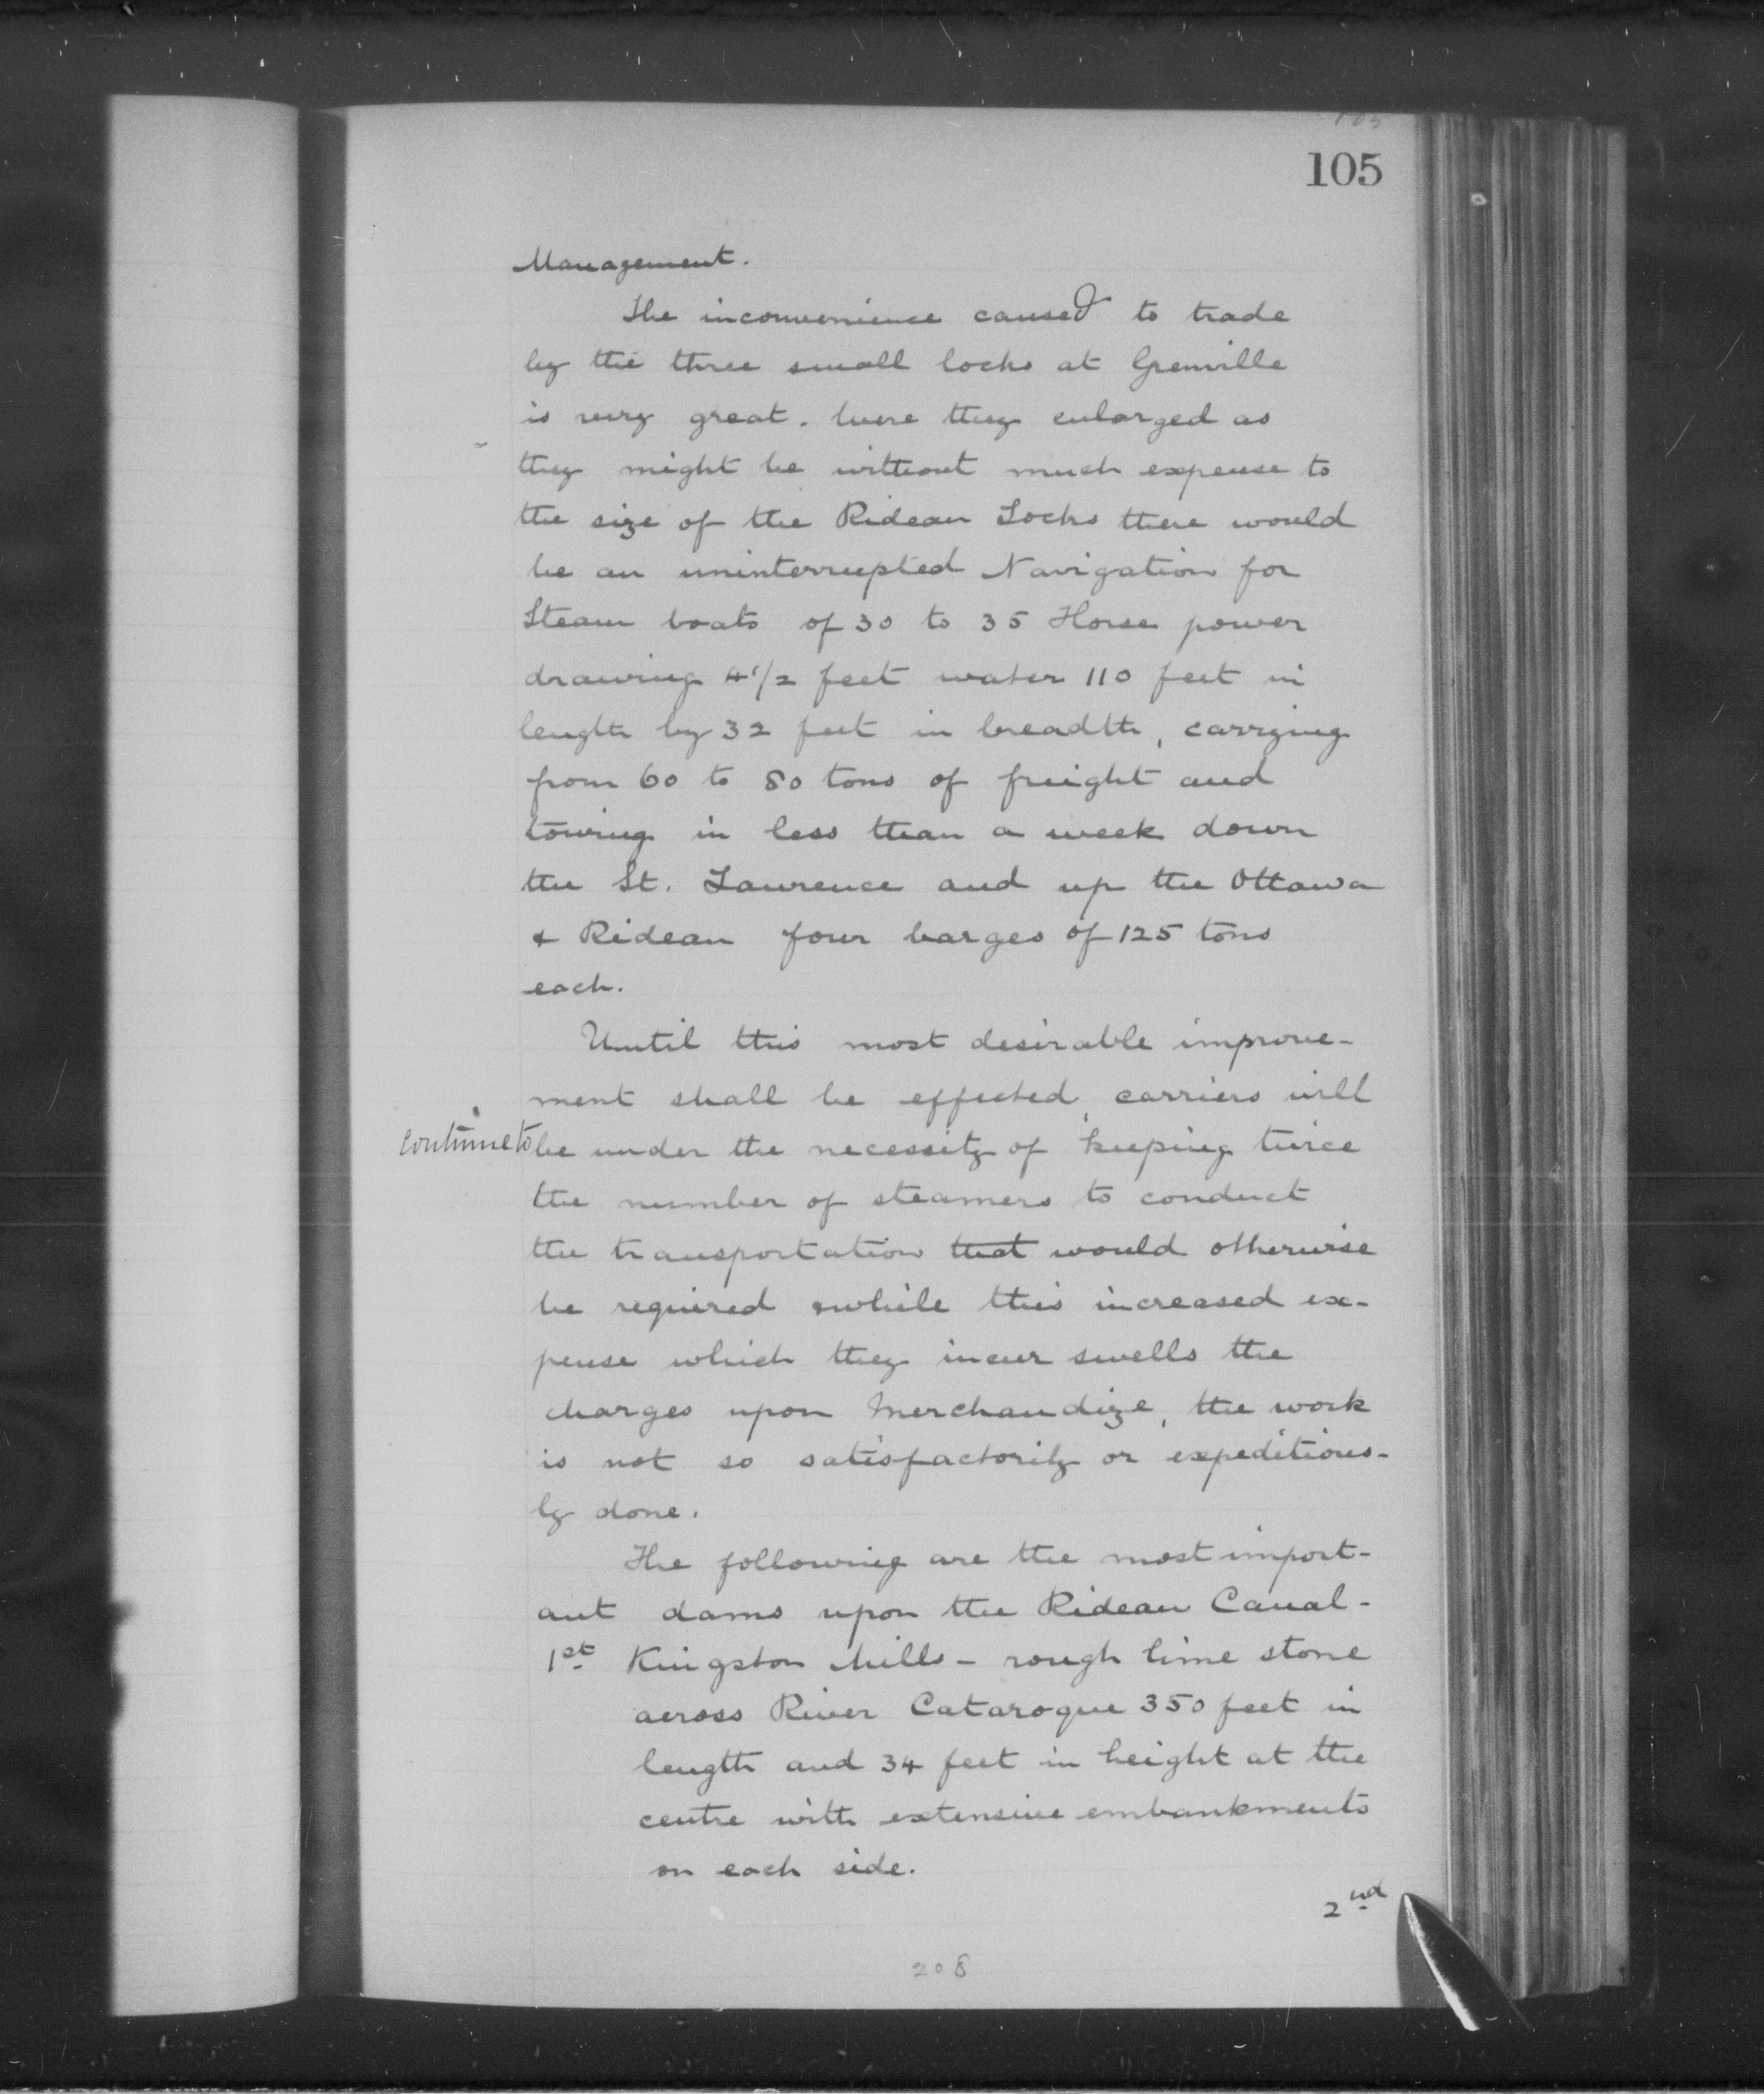 105
105
Management.
The inconvenience caused to trade
by the three small locks at Grenville
is very great. Were they enlarged as
they might be without much expense to
the size of the Rideau Locks there would
be an uninterrupted Navigation for
Steam boats of 30 to 35 Horse power
drawing 4 1/2 feet water 110 feet in
length by 32 feet in breadth, carrying
from 60 to 80 tons of freight and
towing in less than a week down
the St. Lawrence and up the Ottawa
& Rideau four barges of 125 tons
each.
Until this most desirable improve-
ment shall be effected, carriers will
continue to be under the necessity of keeping twice
the number of steamers to conduct
the transportation that would otherwise
be required while this increased ex-
pense which they incur swells the
charges upon Merchandize, the work
is not so satisfactorily or expeditious-
ly done.
The following are the most import-
ant dams upon the Rideau Canal -
1st Kingston Mills - rough lime stone
across River Cataroque 350 feet in
length and 34 feet in height at the
centre with extensive embankments
on each side.
2nd
208